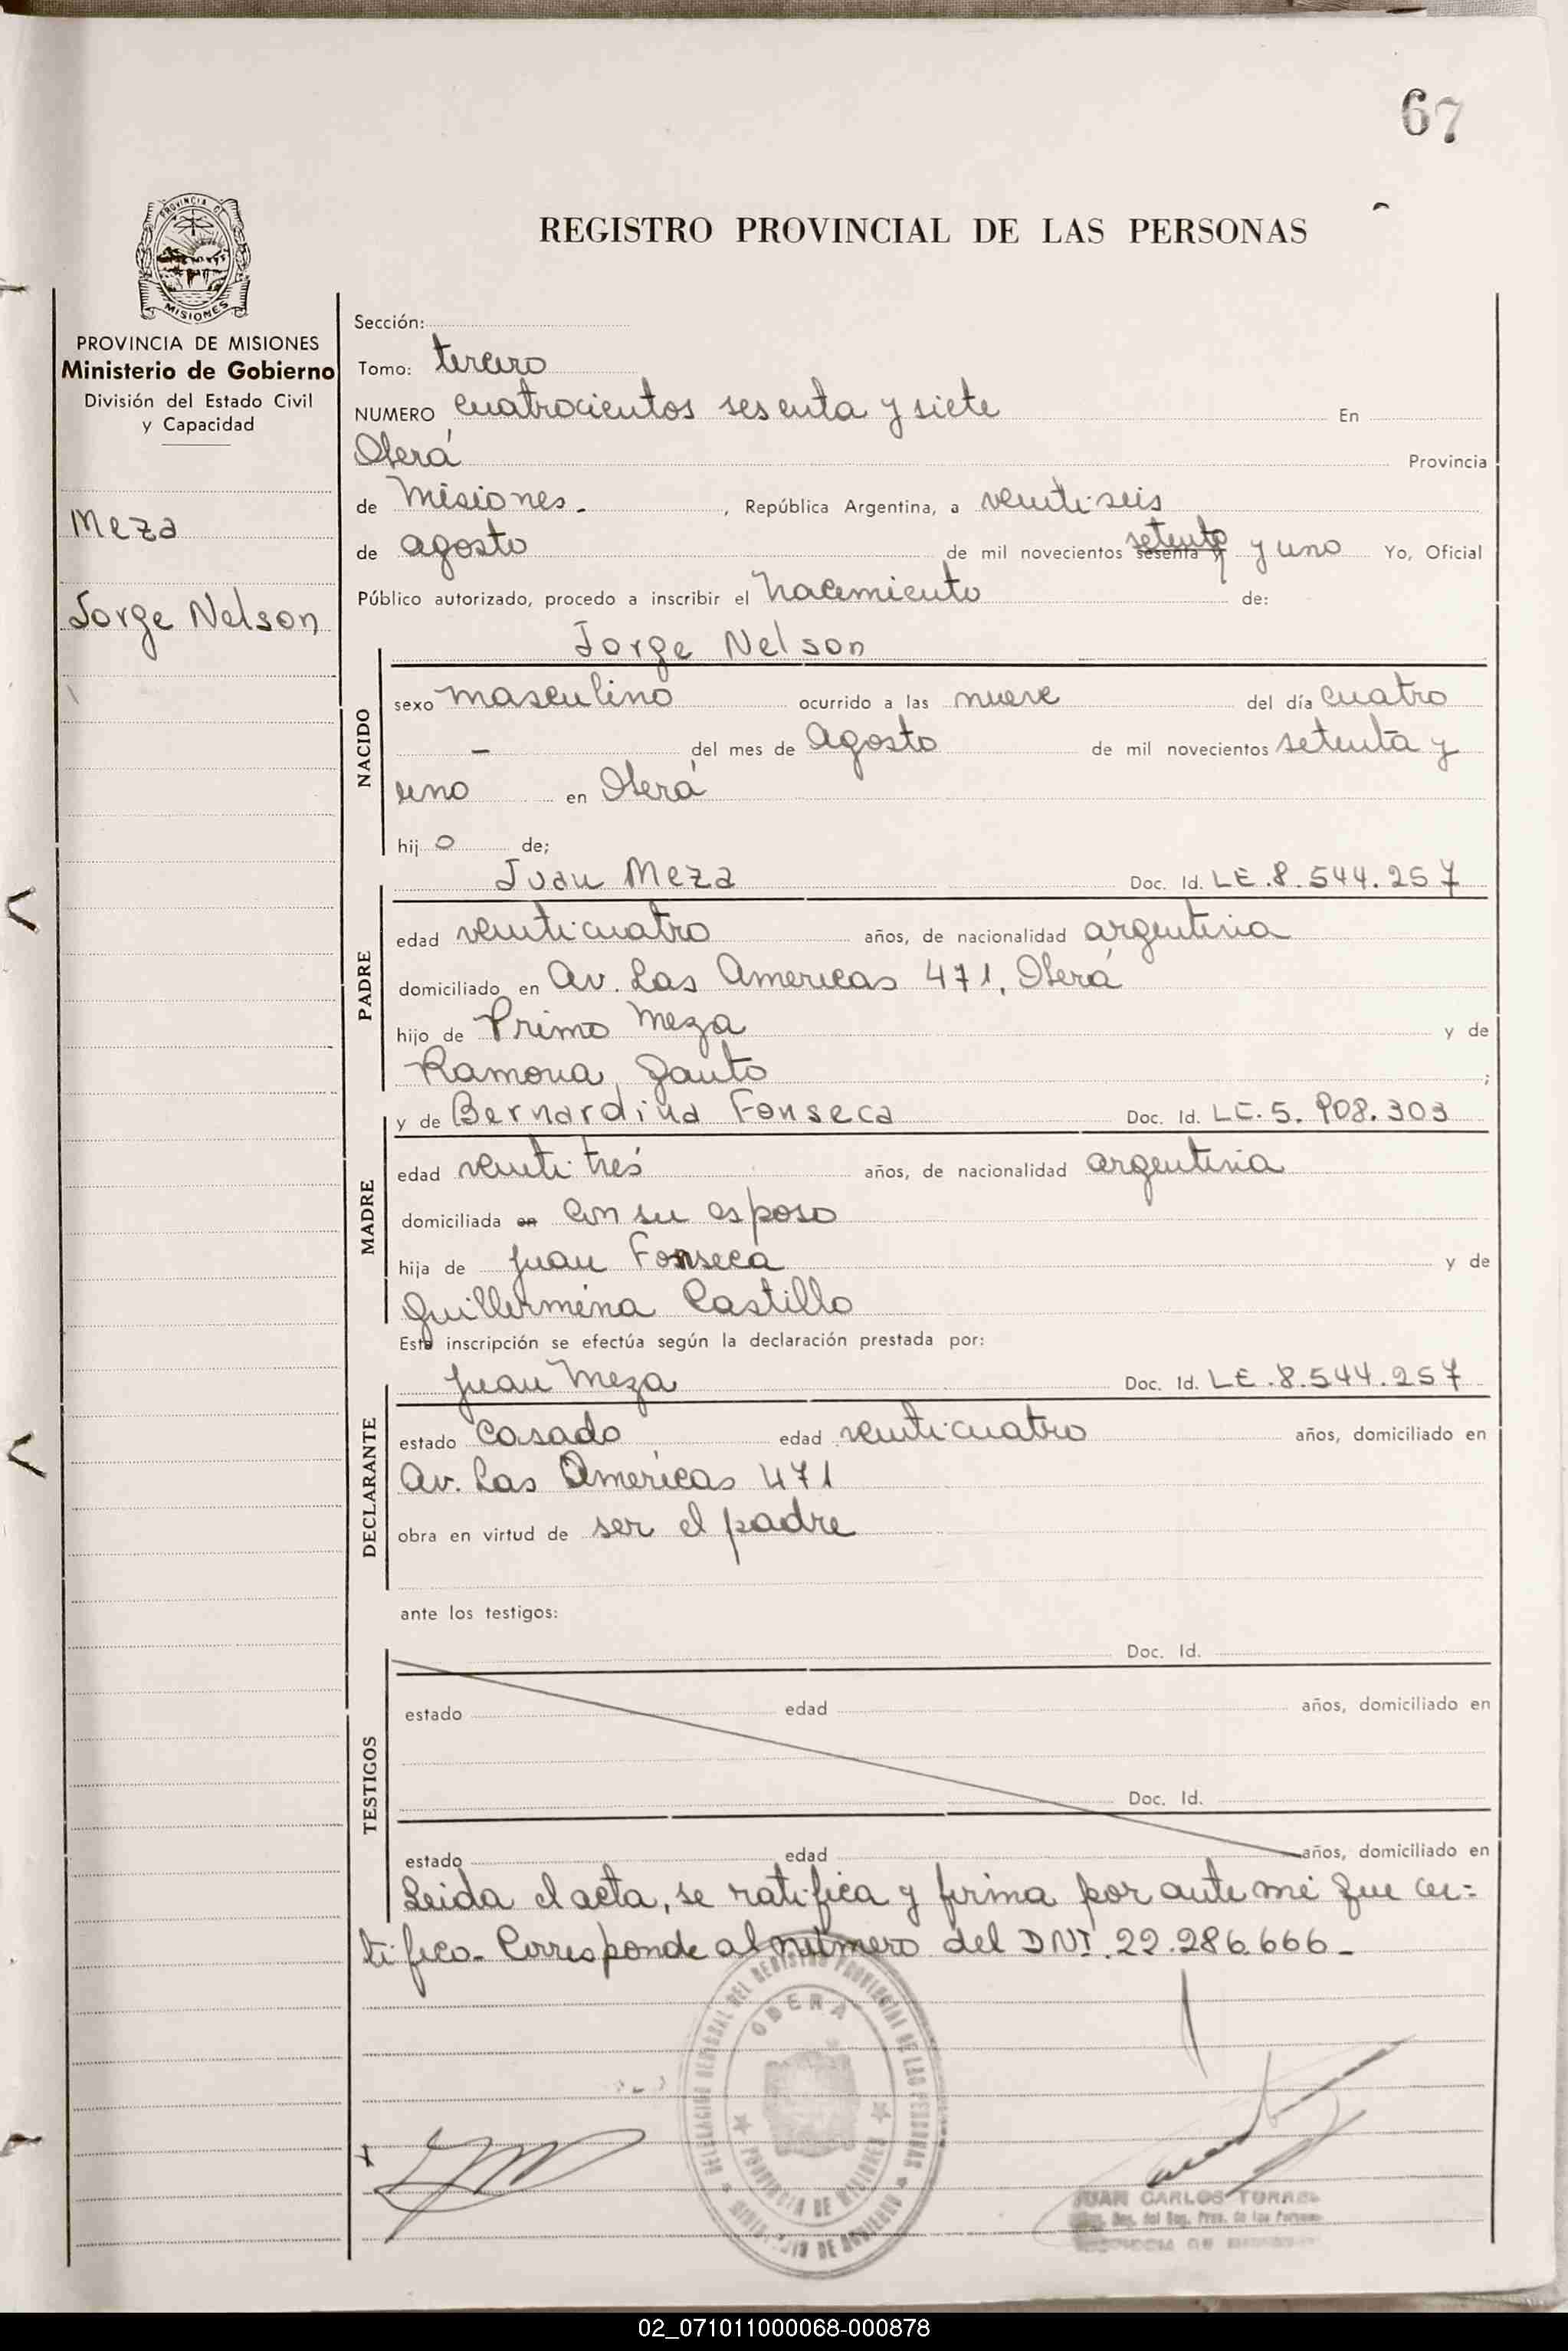 67
REGISTRO PROVINCIAL DE LAS PERSONAS
PROVINCIA DE MISIONES
PROVINCIA DE MISIONES
Ministerio de Gobierno
División del Estado Civil
y Capacidad
Meza
Jorge Nelson
Sección:
Tomo: tercero
NUMERO cuatrocientos sesenta y siete En
Oberá Provincia
de Misiones- , República Argentina, a veinti-seis
de agosto de mil novecientos sesenta y setenta y uno Yo, Oficial
Público autorizado, procedo a inscribir el nacimiento de:
Jorge Nelson
NACIDO
sexo masculino ocurrido a las nueve del día cuatro
- del mes de agosto de mil novecientos setenta y
uno en Oberá
hij o de;
Juan Meza Doc. Id. LE.8.544.257
PADRE
edad veinticuatro años, de nacionalidad argentina
domiciliado en Av. Las Americas 471, Oberá
hijo de Primo Meza y de
Ramona Gauto ;
y de Bernardina Fonseca Doc. Id. LC.5.908.303
MADRE
edad veinti-trés años, de nacionalidad argentina
domiciliada en con su esposo
hija de Juan Fonseca y de
Guillermina Castillo
Esta inscripción se efectúa según la declaración prestada por:
Juan Meza Doc. Id. LE.8.544.257
DECLARANTE
estado casado edad veinticuatro años, domiciliado en
Av. Las Américas 471
obra en virtud de ser el padre
ante los testigos:
TESTIGOS
Doc. Id.
estado edad años, domiciliado en
Doc. Id.
estado edad años, domiciliado en
Leida el acta, se ratifica y firma por ante mi que cer=
tifico- Corresponde al número del DNI.22.286.666-
DELEGACIÓN SECCIONAL DEL REGISTRO PROVINCIAL DE LAS PERSONAS
OBERA
PROVINCIA DE MISIONES
MINISTERIO DE GOBIERNO
JUAN CARLOS TORRES
Reg. Prov. de las Personas
02_071011000068-000878